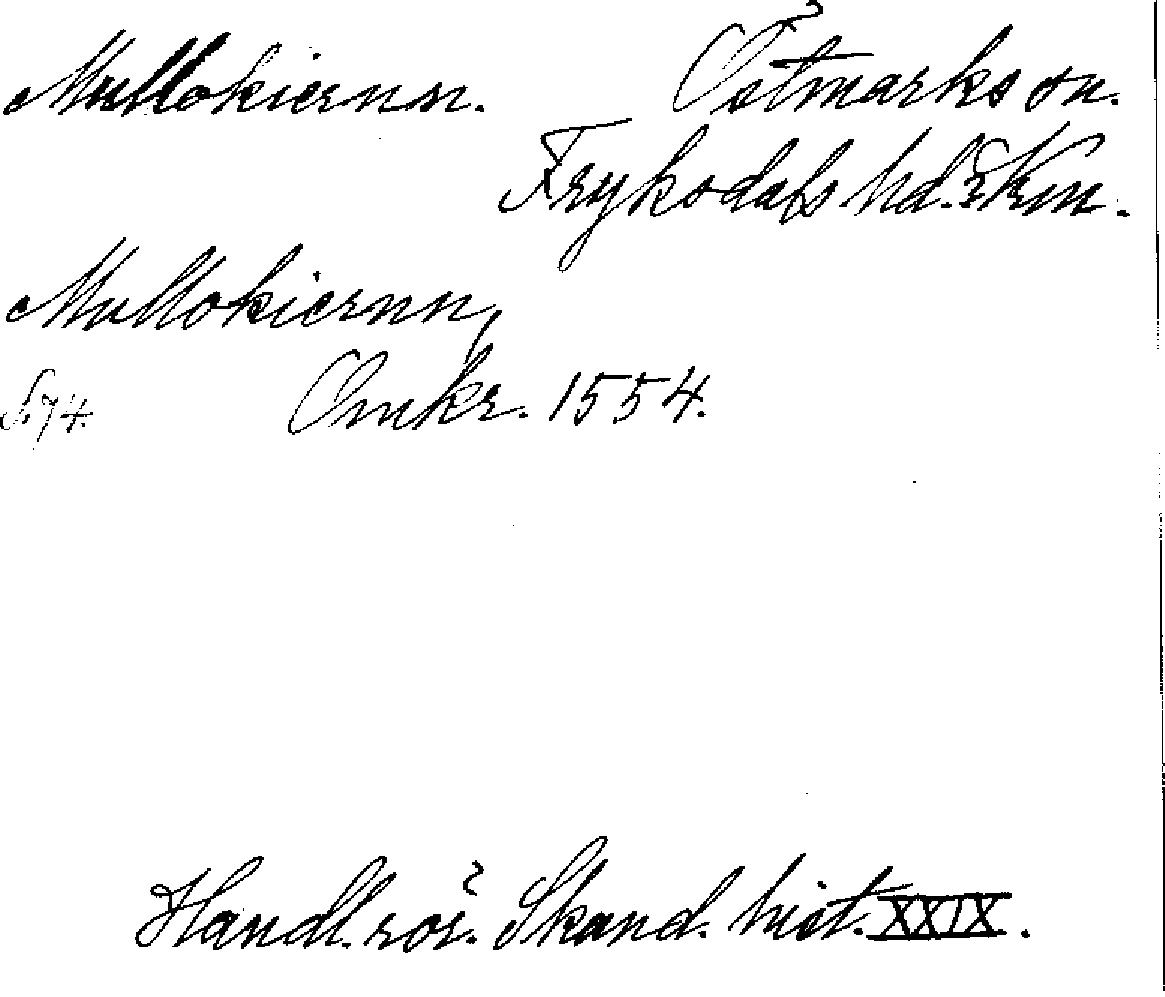 Mullokiernn. Östmarks sn.
Fryksdals hd. Vrm.
Mullokiernn,
S. 74. Omkr. 1554.
Handl. rör. Skand. hist. XXIX.